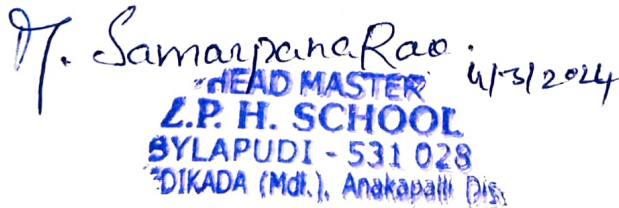 M. SamarpanaRao. 4/3/2024
HEAD MASTER
Z.P. H. SCHOOL
BYLAPUDI - 531 028
DIKADA (Mdl.), Anakapalli Dis.